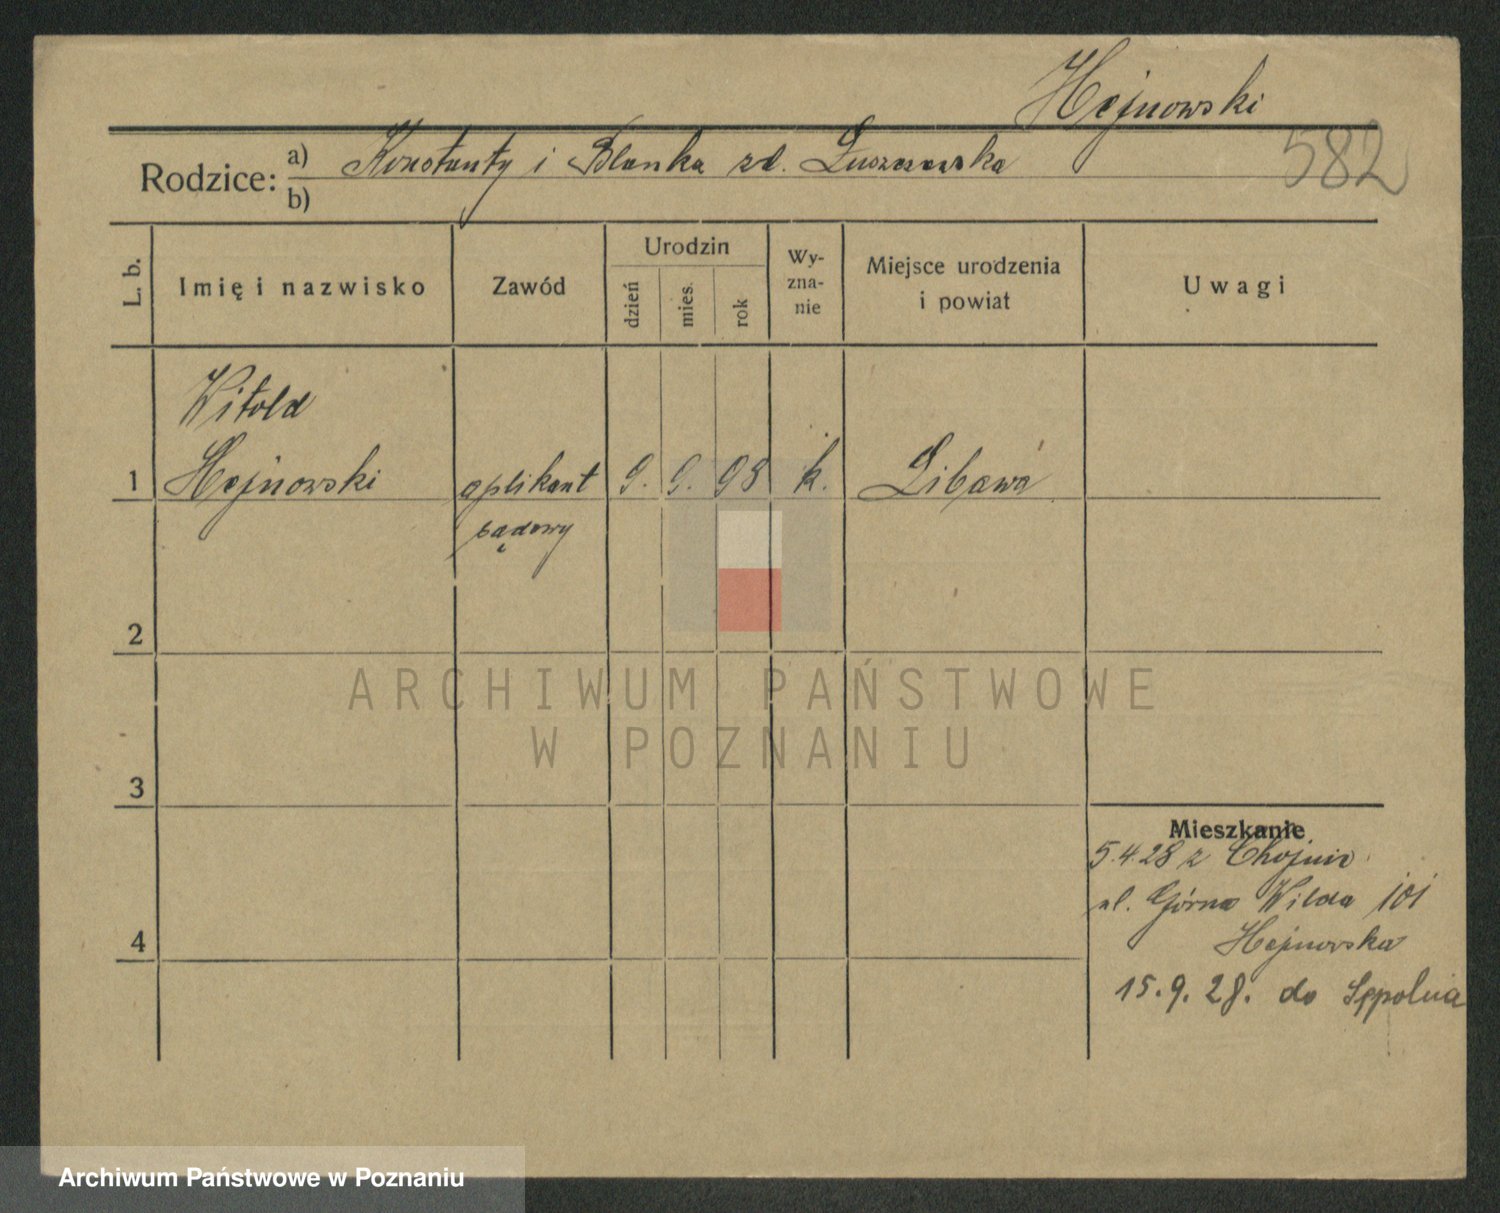 Hejnowski
582
Rodzice: a) Konstanty i Blanka zd. Łuszczewska
b)
L. b.
Imię i nazwisko
Zawód
Urodzin
dzień
mies.
rok
Wy-
zna-
nie
Miejsce urodzenia
i powiat
Uwagi
Witold
1 Hejnowski aplikant 9. 9. 98 k. Libawa
sądowy
2
ARCHIWUM PAŃSTWOWE
W POZNANIU
3
Mieszkanie
5.4.28 z Chojnic
ul. Górna Wilda 101
4
Hejnowska
15.9.28. do Sępolna
Archiwum Państwowe w Poznaniu